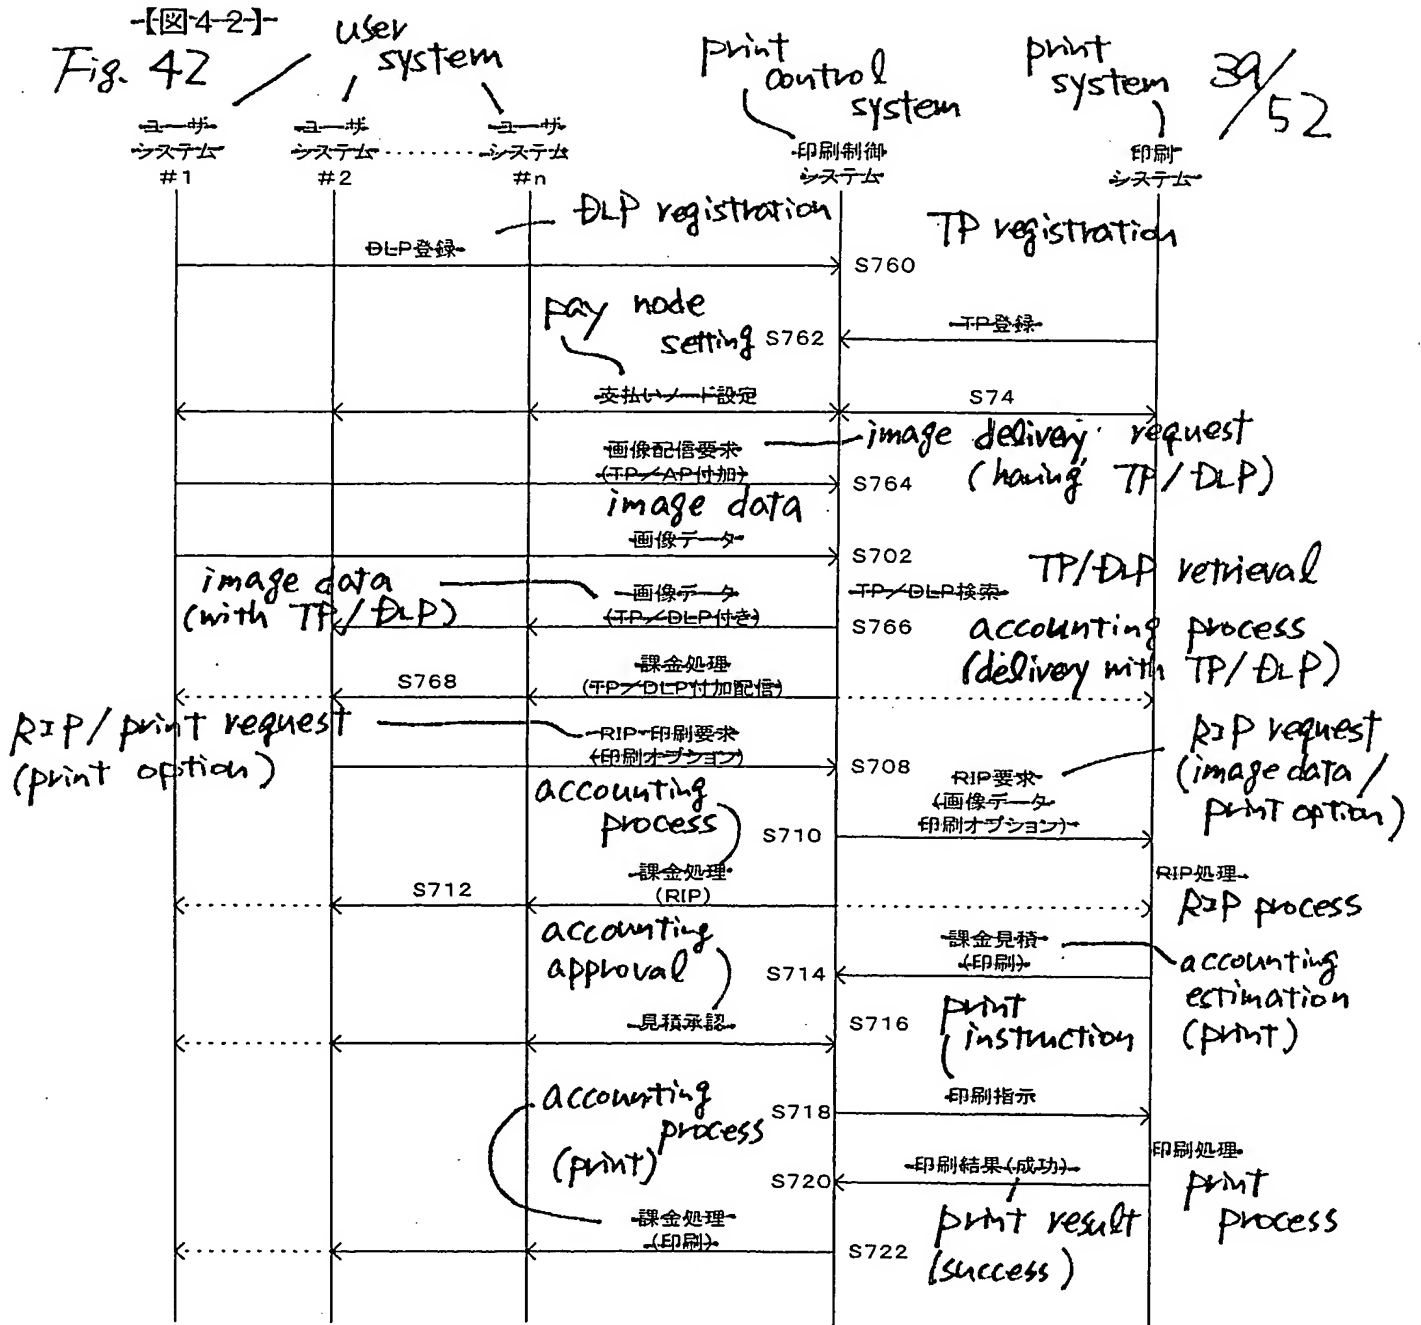 【図42】
Fig. 42
user
system
print
control
system
print
system
39/52
ユーザ
システム
#1
ユーザ
システム
#2
........
ユーザ
システム
#n
印刷制御
システム
印刷
システム
DLP registration
TP registration
DLP登録
S760
pay node
setting
S762
TP登録
支払いノード設定
S74
画像配信要求
(TP/AP付加)
image delivery request
(having TP/DLP)
S764
image data
画像データ
S702
TP/DLP retrieval
image data
(with TP/DLP)
画像データ
(TP/DLP付き)
TP/DLP検索
S766
accounting process
(delivery with TP/DLP)
課金処理
(TP/DLP付加配信)
S768
RIP/print request
(print option)
RIP・印刷要求
(印刷オプション)
S708
RIP request
(image data/
print option)
RIP要求
(画像データ
印刷オプション)
accounting
process
S710
課金処理
(RIP)
S712
RIP処理
RIP process
accounting
approval
S714
課金見積
(印刷)
accounting
estimation
(print)
見積承認
S716
print
instruction
印刷指示
accounting
process
(print)
S718
印刷処理
print
process
印刷結果(成功)
S720
print result
(success)
課金処理
(印刷)
S722